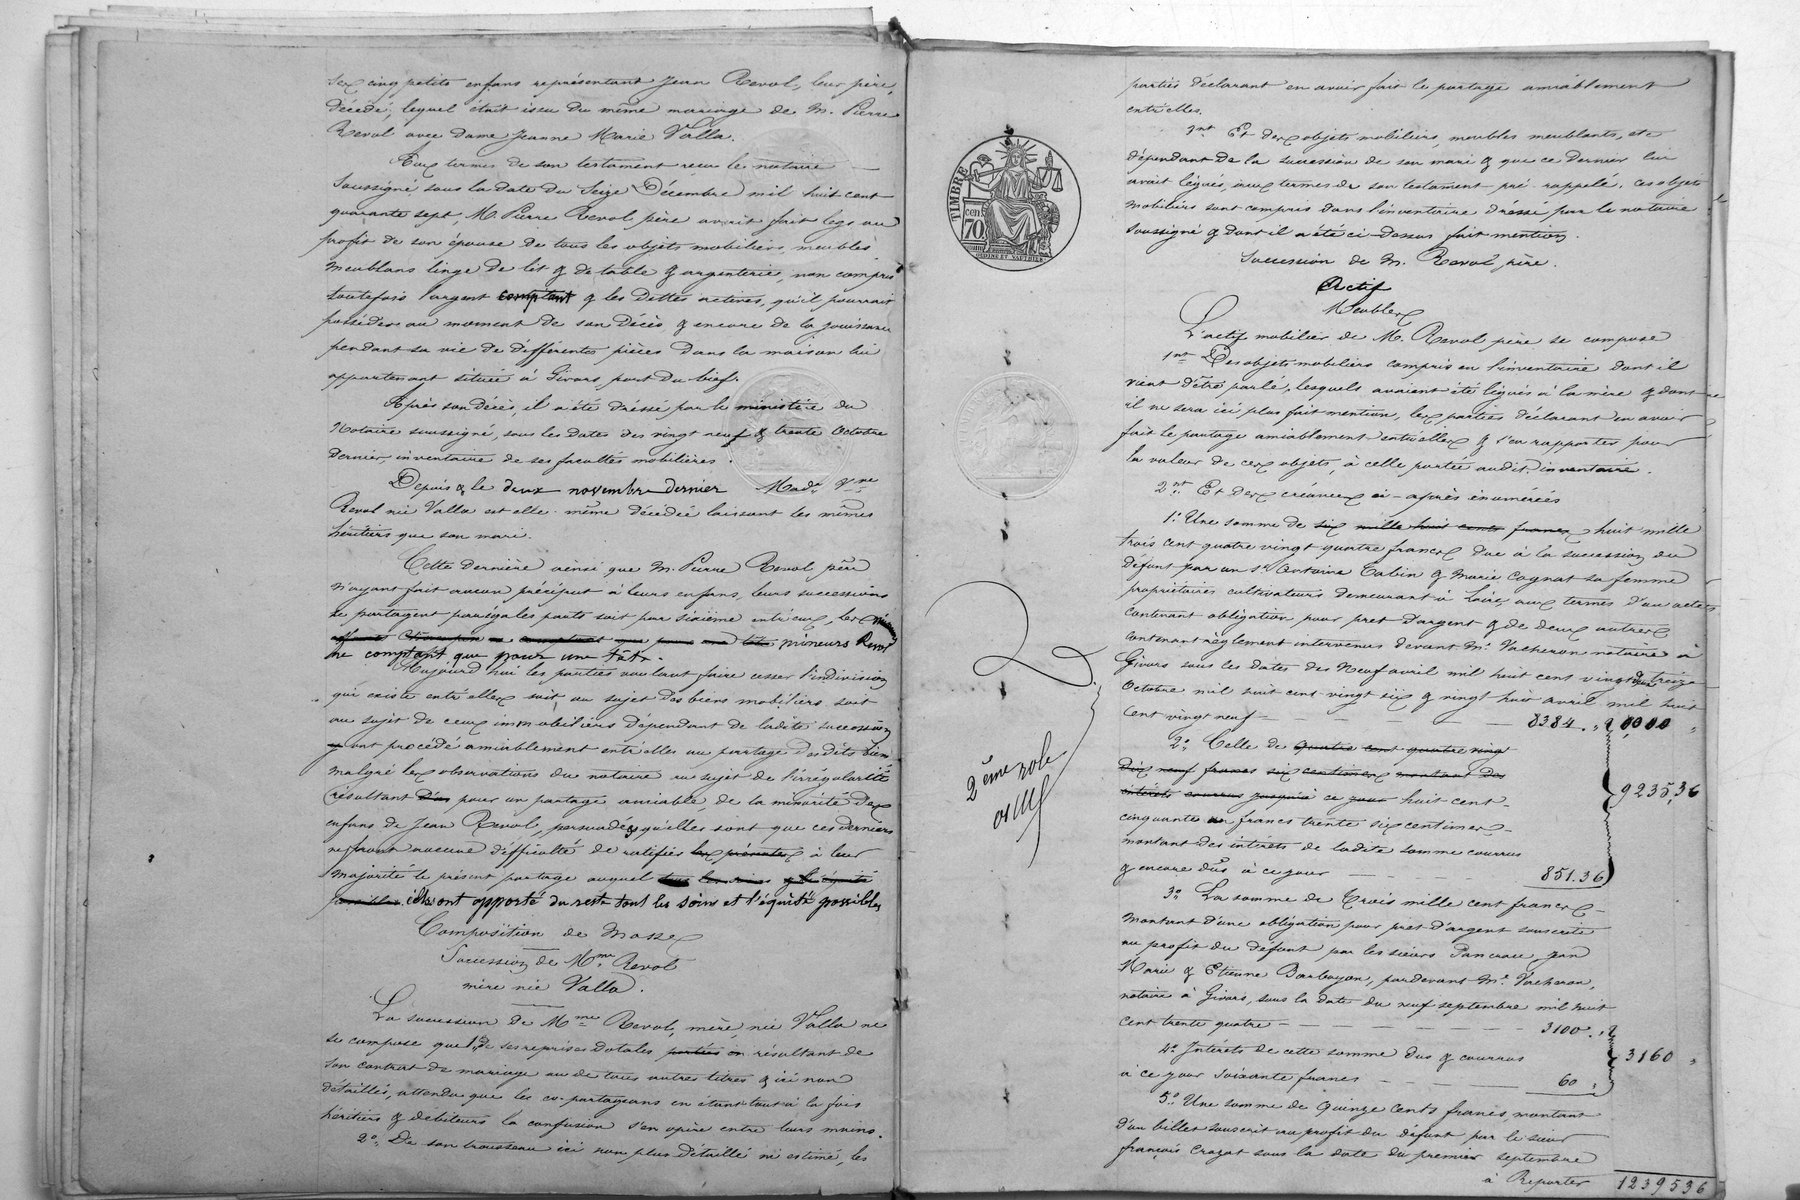 ses cinq petits enfans représentant Jean Revol, leur père,
décédé, lequel était issu du même mariage de M. Pierre
Revol avec dame Jeanne Marie Valla.
Aux termes de son testament reçu le notaire
soussigné sous la date du Seize Décembre mil huit cent
quarante sept M. Pierre Revol père avait fait legs au
profit de son épouse de tous les objets mobiliers, meubles
meublans linge de lit & de table & argenterie, non compris
toutefois l'argent comptant & les dettes actives, qu'il pourrait
posséder au moment de son décès & encore de la jouissance
pendant sa vie de différentes pièces dans la maison lui
appartenant située à Givors, port du bief.
Après son décès, il a été dréssé par le ministère du
Notaire soussigné, sous les dates des vingt neuf & trente Octobre
dernier, inventaire de ses facultés mobilières.
Depuis & le deux novembre dernier Made Vve
Revol née Valla est elle même décédée laissant les mêmes
héritiers que son mari.
Cette dernière ainsi que M. Pierre Revol père
n'ayant fait aucun préciput à leurs enfans, leurs successions
se partagent par égales parts soit par sixième entr'eux, les
mineurs Revol
ne comptant que pour une tête.
Aujourd'hui les parties voulant faire cesser l'indivision
qui existe entr'elles soit au sujet des biens mobiliers soit
au sujet de ceux immobiliers dépendant de ladite succession
ont procédé amiablement entr'elles au partage desdits biens
malgré les observations du notaire au sujet de l'irrégularité
résultant pour un partage amiable, de la minorité des
enfans de Jean Revol, persuadées qu'elles sont que ces derniers
ne feront aucune difficulté de ratifier les présentes à leur
majorité le présent partage auquel
elles ont apporté du reste tout les soins et l'équité possibles
Composition de Masses
Succession de Mme Revol
mère née Valla.
La succession de Mme Revol, mère, née Valla ne
se compose que 1° de ses reprises dotales portées résultant de
son contrat de mariage ou de tous autres titres & ici non
détaillés, attendu que les co-partageans en étant tout à la fois
héritiers & débiteurs la confusion s'en opère entre leurs mains.
2° De son trousseau ici non plus détaillé ni estimé, les
parties déclarant en avoir fait le partage amiablement
entr'elles.
3nt Et des objets mobiliers, meubles meublants, etc
dépendant de la succession de son mari & que ce dernier lui
avait légués, aux termes de son testament pré-rappelé. Ces objets
mobiliers sont compris dans l'inventaire dréssé par le notaire
soussigné & dont il a été ci-dessus fait mention.
Succession de M. Revol père.
Actif
Meubles
L'actif mobilier de M. Revol père se compose
1nt Des objets mobiliers compris en l'inventaire dont il
vient d'être parlé, lesquels avaient été légués à la mère & dont
il ne sera ici plus fait mention, les parties déclarant en avoir
fait le partage amiablement entr'elles & s'en rapporter pour
la valeur de ces objets, à celle portée audit inventaire.
2nt Et des créances ci-après énumérées
1° Une somme de six mille huit cents francs huit mille
trois cent quatre vingt quatre francs due à la succession du
défunt par un Sr Antoine Cabin & Marie Cognat sa femme
propriétaires cultivateurs demeurant à Loire, aux termes d'un acte
contenant obligation pour prêt d'argent & de deux autres
contenant règlement intervenus devant Me Vacheron notaire à
Givors sous les dates des Neuf avril mil huit cent vingt treize
Octobre mil huit cent vingt six & vingt huit avril mil huit
cent vingt neuf 8384 . "
2° Celle de quatre cent quatre vingt
dix neuf francs six centimes montant des
intérêts courrus jusqu'à ce jour huit cent
cinquante un francs trente six centimes
montant des intérêts de ladite somme courrus
& encore dûs à ce jour 851.36
9235,36
3° La somme de Trois mille cent francs
montant d'une obligation pour prêt d'argent souscrite
au profit du défunt par les sieurs Pancrace, Jean
Marie & Etienne Barbayon, pardevant Me Vacheron,
notaire à Givors, sous la date du neuf septembre mil huit
cent trente quatre 3100 . "
4° Intérêts de cette somme dus & courrus
à ce jour soixante francs 60 "
3160 "
5° Une somme de Quinze cents francs, montant
d'un billet souscrit au profit du défunt par le sieur
François Crozat sous la date du premier septembre
à Reporter 12395 36
TIMBRE
70 cen
2ème role